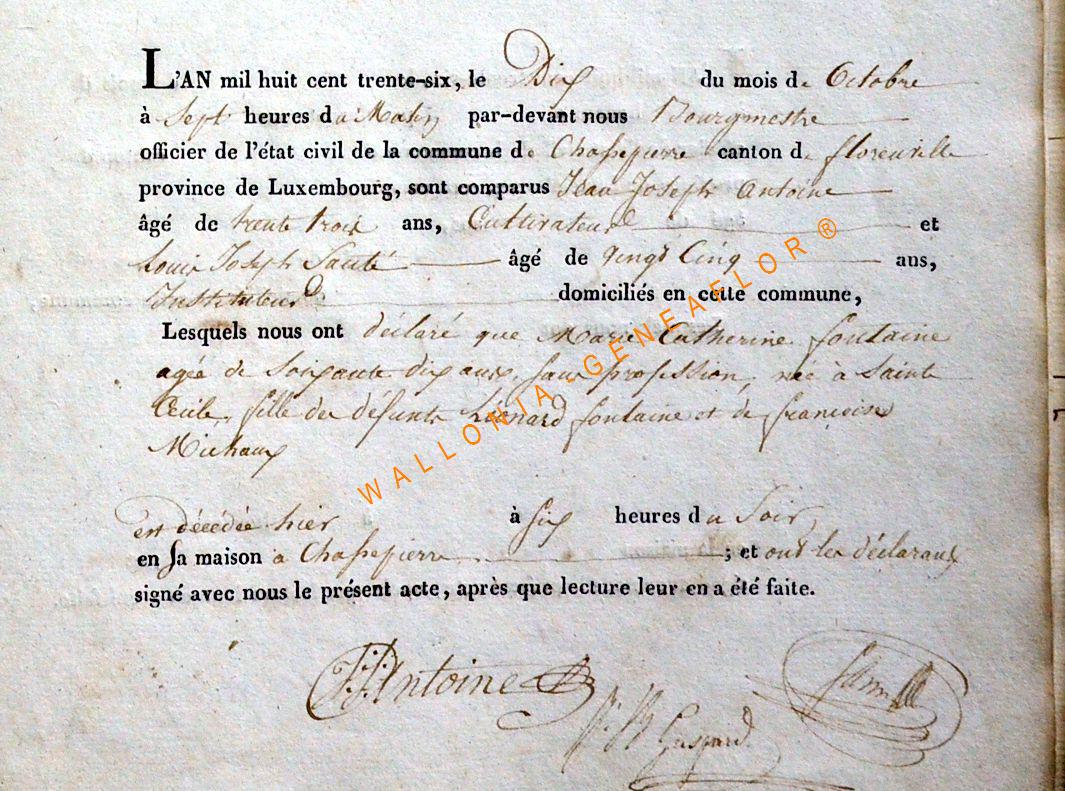 L'AN mil huit cent trente-six, le Dix du mois de Octobre
à Sept heures du Matin par-devant nous Bourgmestre
officier de l'état civil de la commune de Chassepierre canton de florenville
province de Luxembourg, sont comparus Jean Joseph Antoine
âgé de trente trois ans, Cultivateur et
Louis Joseph âgé de vingt Cinq ans,
Instituteur domiciliés en cette commune,
Lesquels nous ont déclaré que Marie Catherine fontaine
agée de Soixante dix ans, sans profession, née à Sainte
Cécile, fille de défunts Liénard fontaine et de françoise
Michaux
est décédée hier à six heures du Soir,
en sa maison à Chassepierre ; et ont les déclarans
signé avec nous le présent acte, après que lecture leur en a été faite.
J.J. Antoine
Gaspard
WALLONIA-GENEAFLOR ®